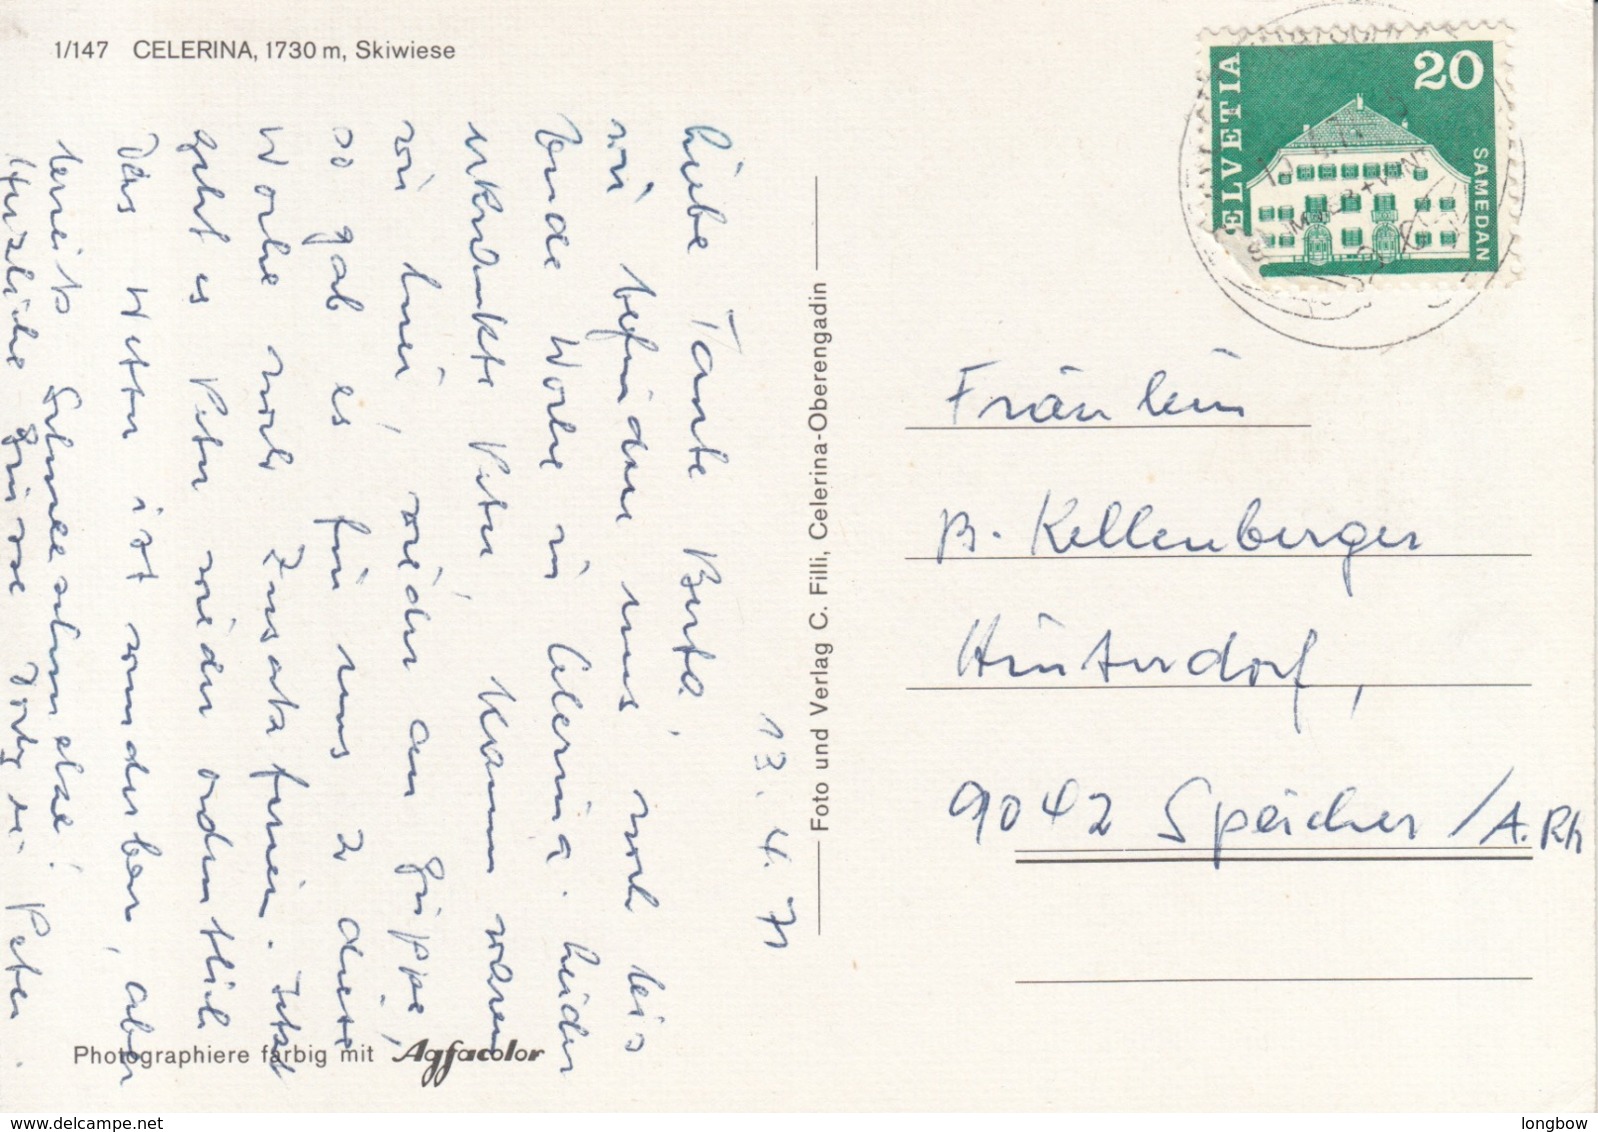 1/147 CELERINA, 1730 m, Skiwiese
13. 4. 71
Liebe Tante Berta,
wir befinden uns noch bis
Ende Woche in Celerina. Leider
erkrankte Peter, kaum waren
wir hier, wieder an Grippe,
so gab es für uns 2 diese
Woche noch Zusatzferien. Jetzt
geht es Peter wieder ordentlich
Das Wetter ist wunderbar, aber
bereits Schneeschmelze!
Herzliche Grüsse Peter.
Photographiere farbig mit Agfacolor
Foto und Verlag C. Filli, Celerina-Oberengadin
HELVETIA
20
SAMEDAN
Fräulein
B. Kellenberger
Hinterdorf,
9042 Speicher / A. Rh
delcampe.net
longbow